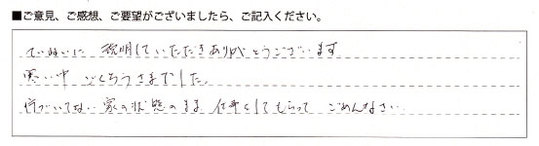 ■ご意見、ご感想、ご要望がございましたら、ご記入ください。
ていねいに 説明していただきありがとうございます
寒い中 ごくろうさまでした。
片づいてない 家の状態のまま 仕事してもらって ごめんなさい